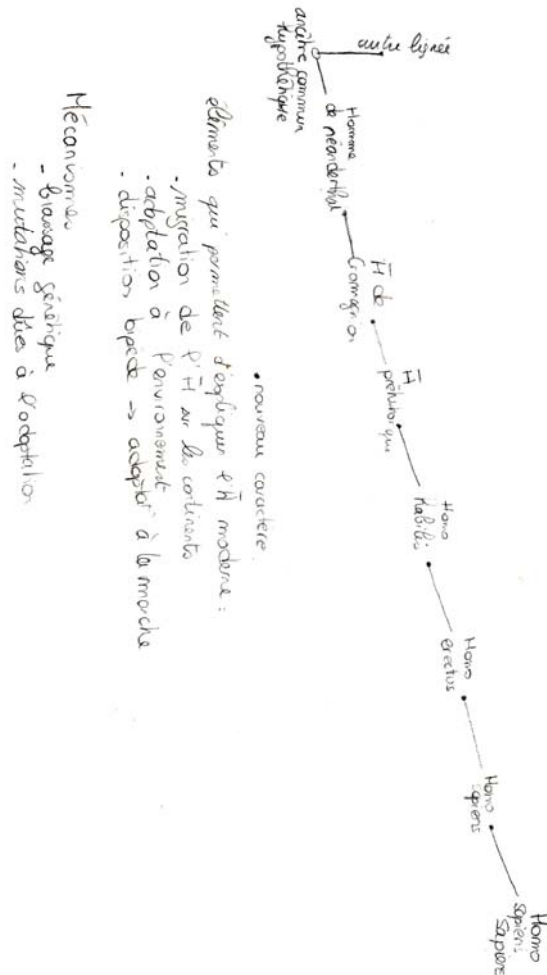 autre lignée
ancêtre commun
hypothétique
Homme
de néanderthal
H̄ de
Cromagnon
H̄
Homo
habilis
Homo
erectus
Homo
sapiens
Homo
sapiens
sapiens
• nouveau caractère
éléments qui permettent d'expliquer l'H̄ moderne :
- migration de l'H̄ sur les continents
- adaptation à l'environnement
- disposition bipède → adaptat° à la marche
Mécanismes
- brassage génétique
- mutations dûes à l'adaptation